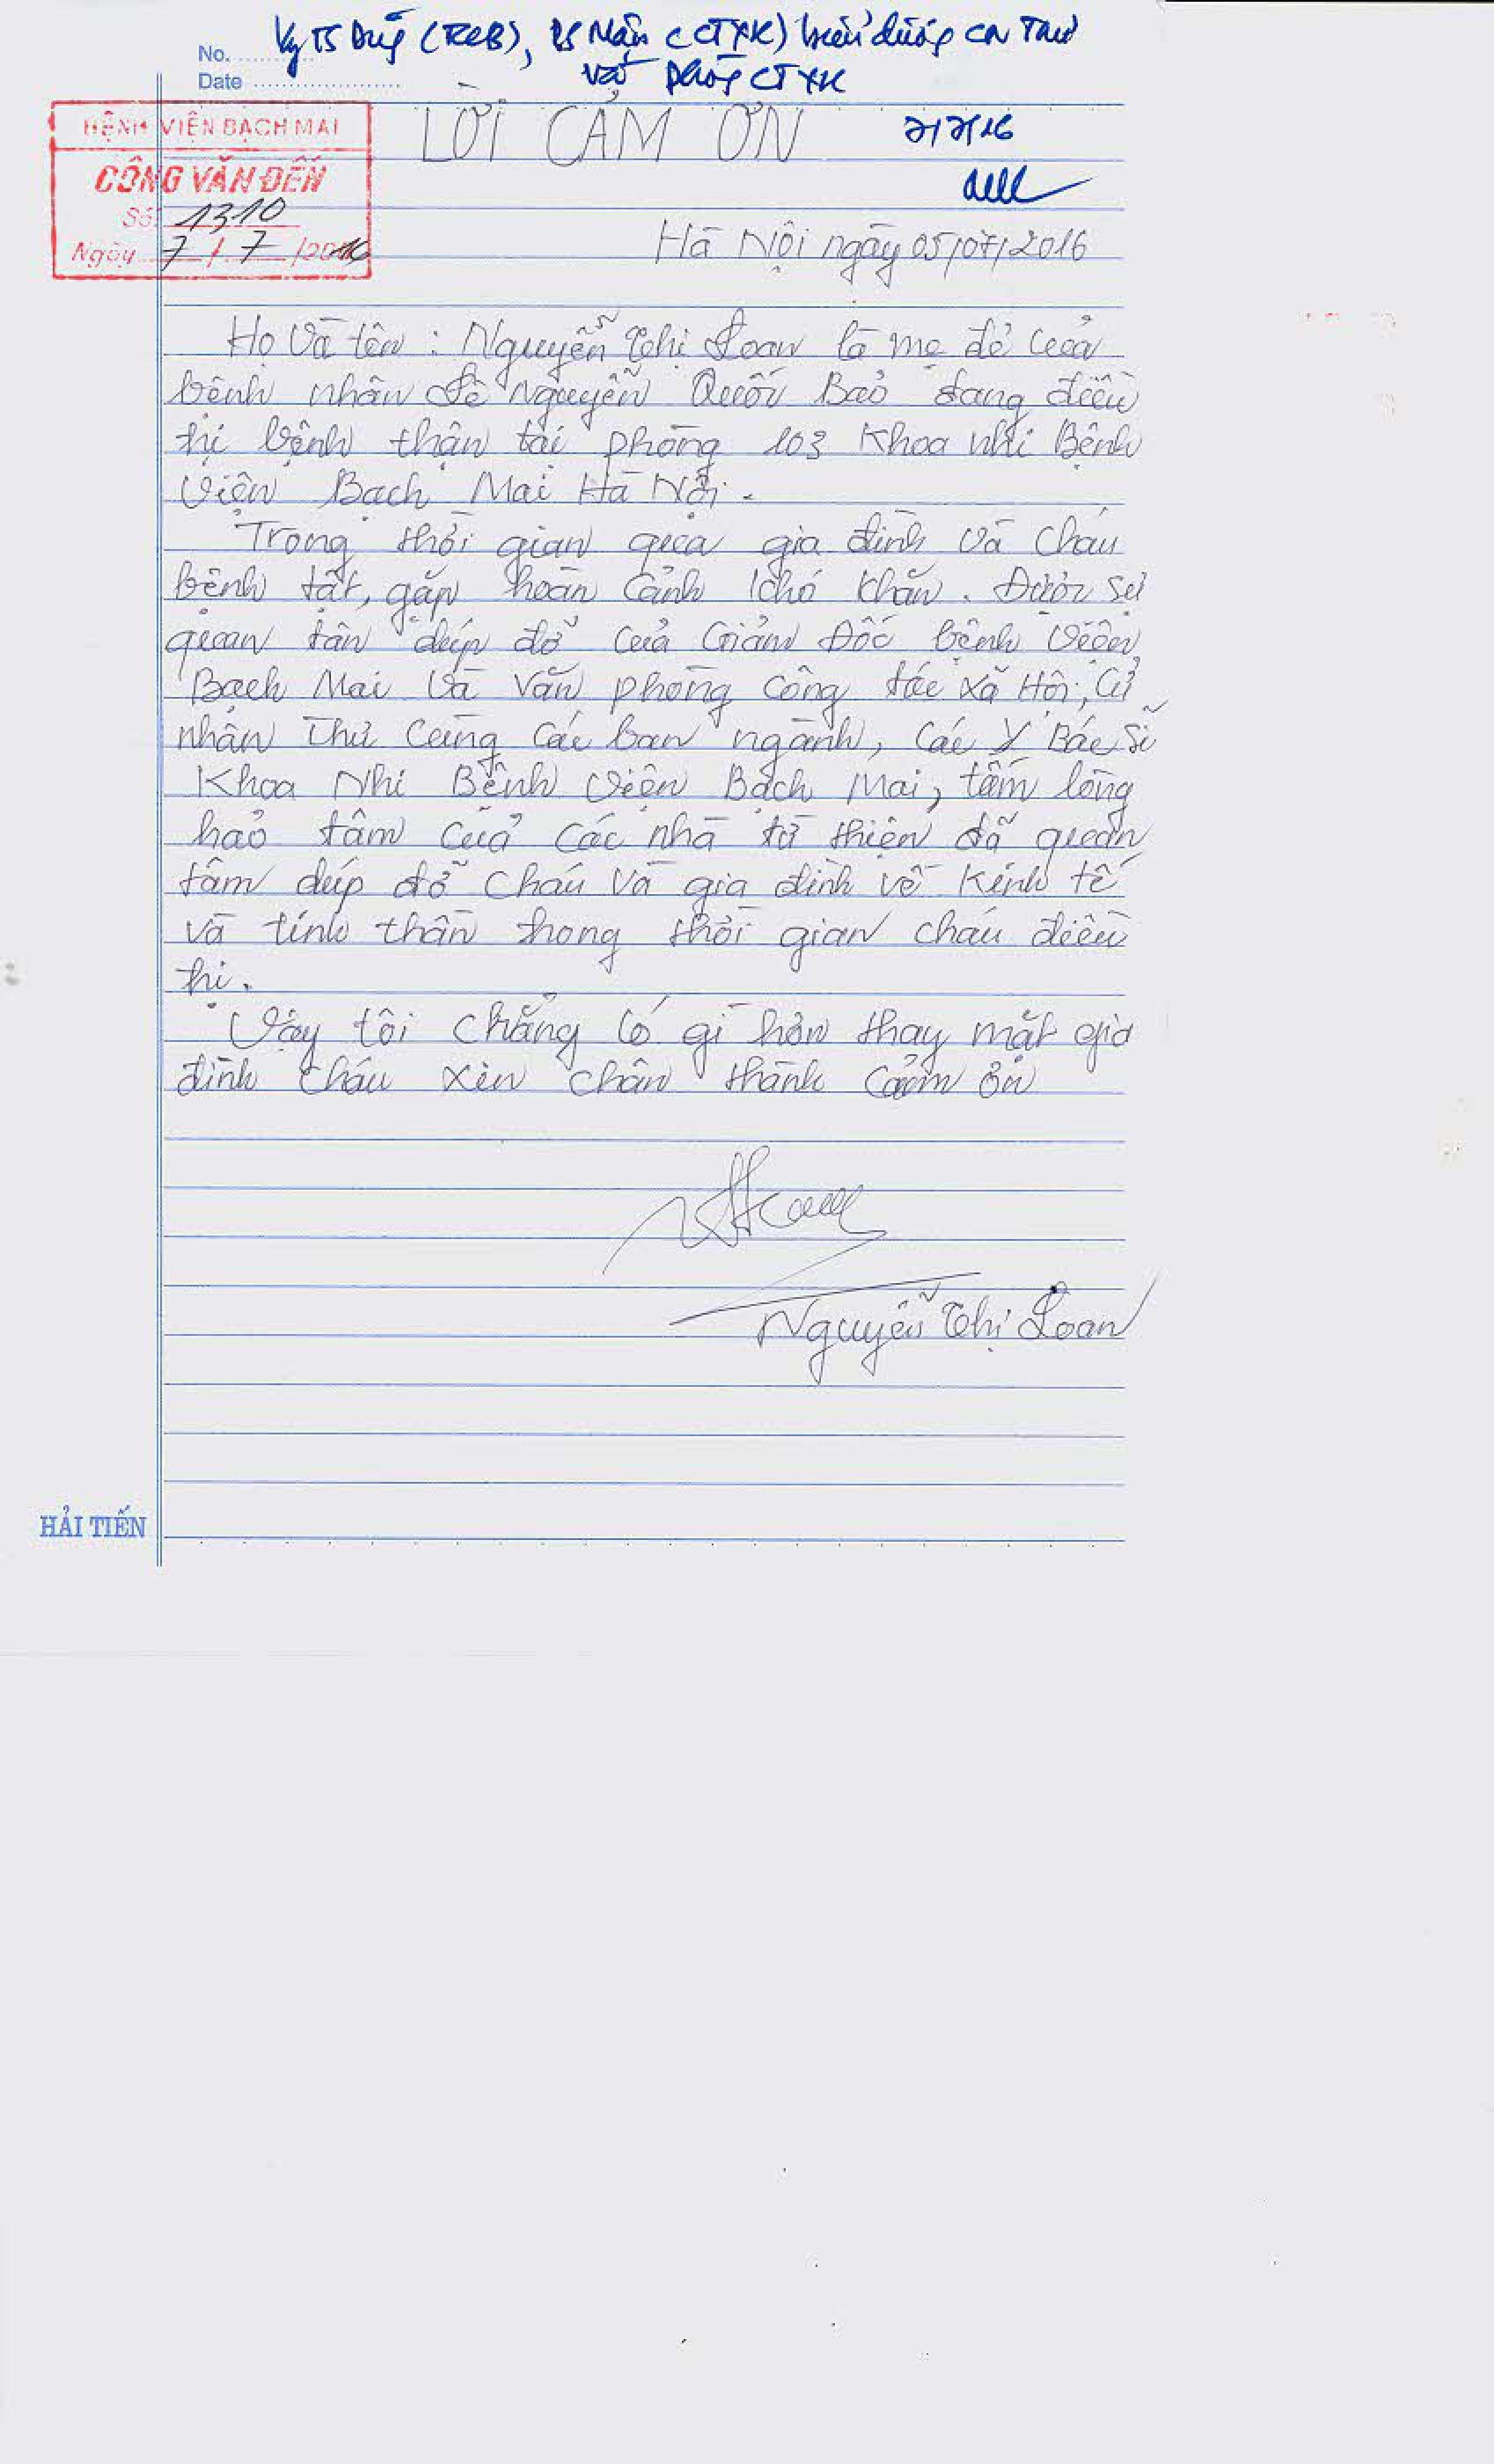 No.
Date
BỆNH VIỆN BẠCH MAI
CÔNG VĂN ĐẾN
Số: 1310
Ngày 7 / 7 /2016
(TCCB), (CTXH) biểu dương CN Thư
và phòng CTXH
7/7/16
LỜI CẢM ƠN
Hà Nội ngày 05/07/2016
Họ Và tên : Nguyễn Thị Loan là mẹ đẻ của
bệnh nhân Lê Nguyễn Quốc Bảo đang điều
trị bệnh thận tại phòng 103 Khoa nhi Bệnh
Viện Bạch Mai Hà Nội.
Trong thời gian qua gia đình và cháu
bệnh tật, gặp hoàn cảnh khó khăn. Được sự
quan tân dúp đỡ của Giảm Đốc bệnh viện
Bạch Mai Và Văn phòng Công tác Xã Hội, Cử
nhân Thư Cùng Các ban ngành, Các Y Bác Sĩ
Khoa Nhi Bệnh Viện Bạch Mai, tấm lòng
hảo tâm của các nhà từ thiện đã quan
tâm dúp đỡ Cháu Và gia đình về Kinh tế
và tinh thần trong thời gian cháu điều
trị.
Vậy tôi Chẳng Có gì hơn thay mặt gia
đình cháu xin chân thành Cảm ơn
Nguyễn Thị Loan
HẢI TIẾN